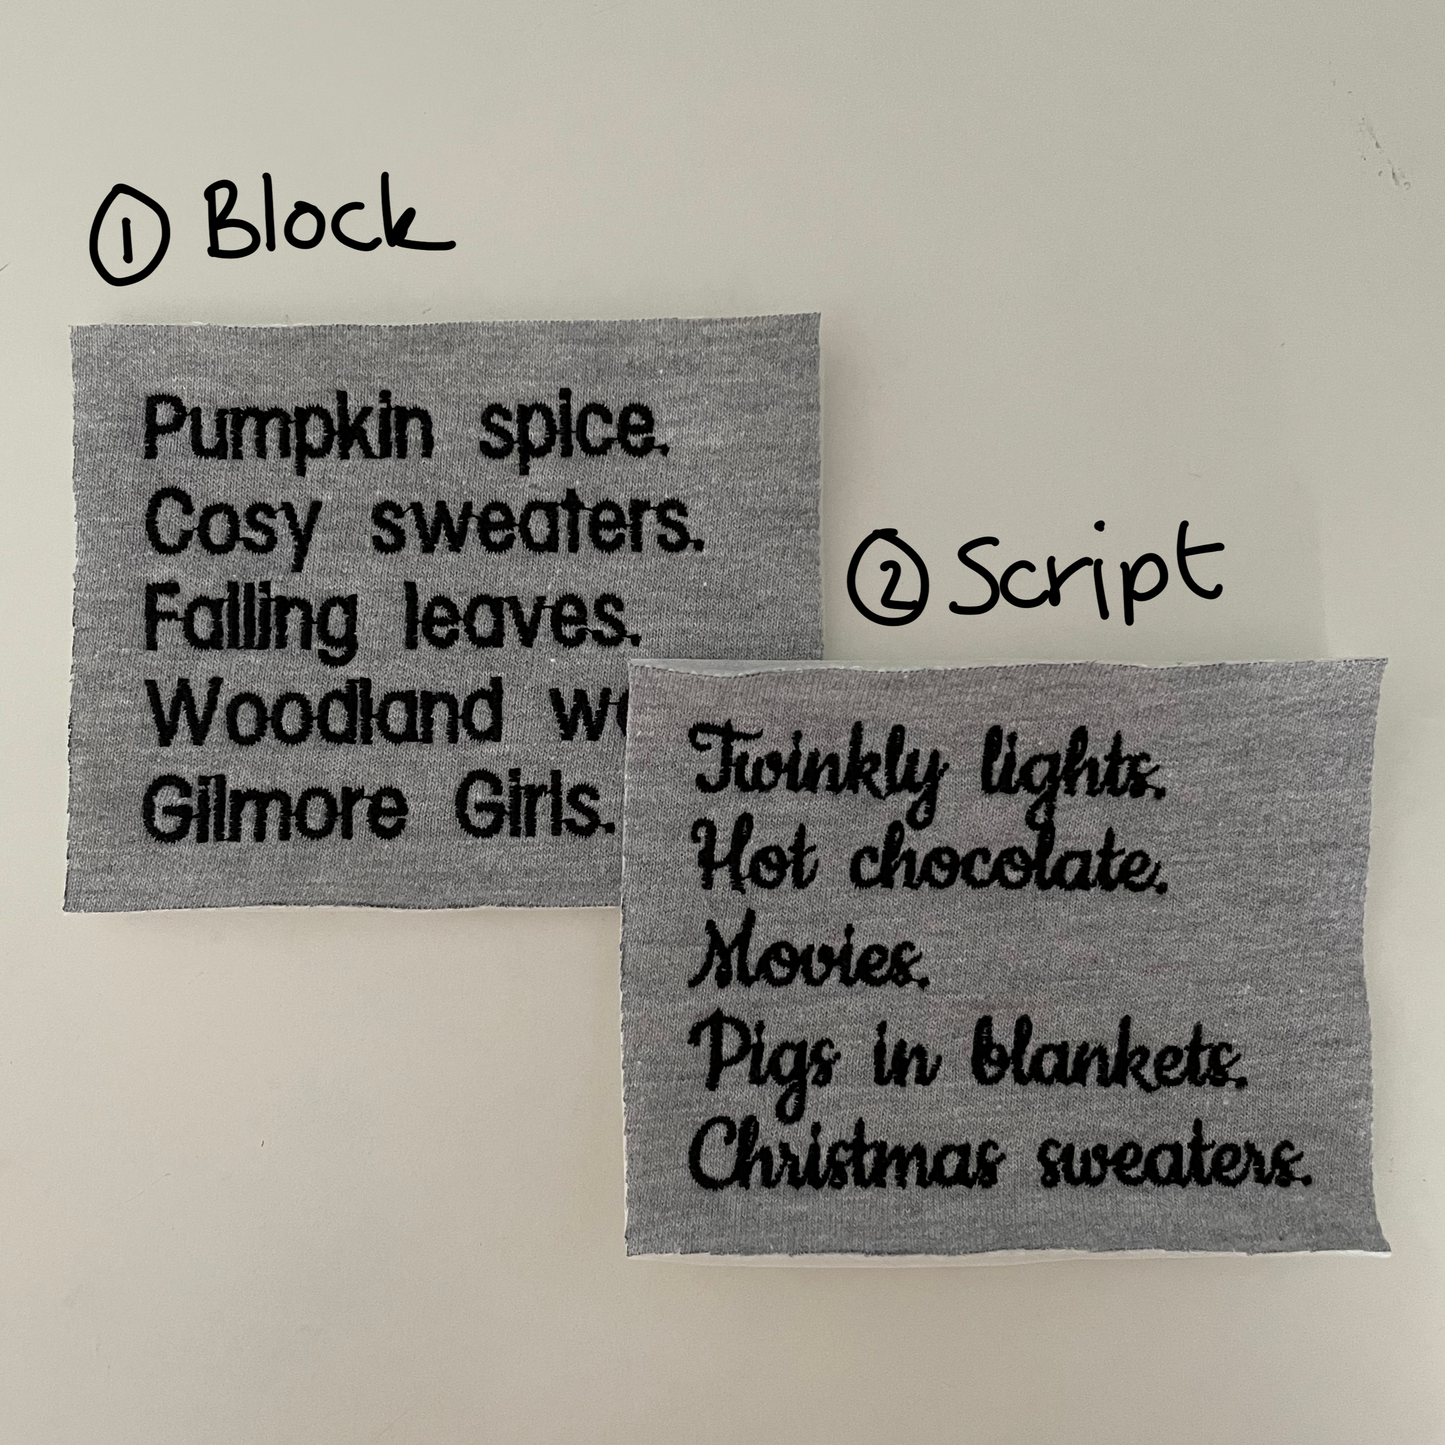 ① Block
Pumpkin spice.
Cosy sweaters.
Falling leaves.
Woodland
Gilmore Girls.
② Script
Twinkly lights.
Hot chocolate.
Movies.
Pigs in blankets.
Christmas sweaters.